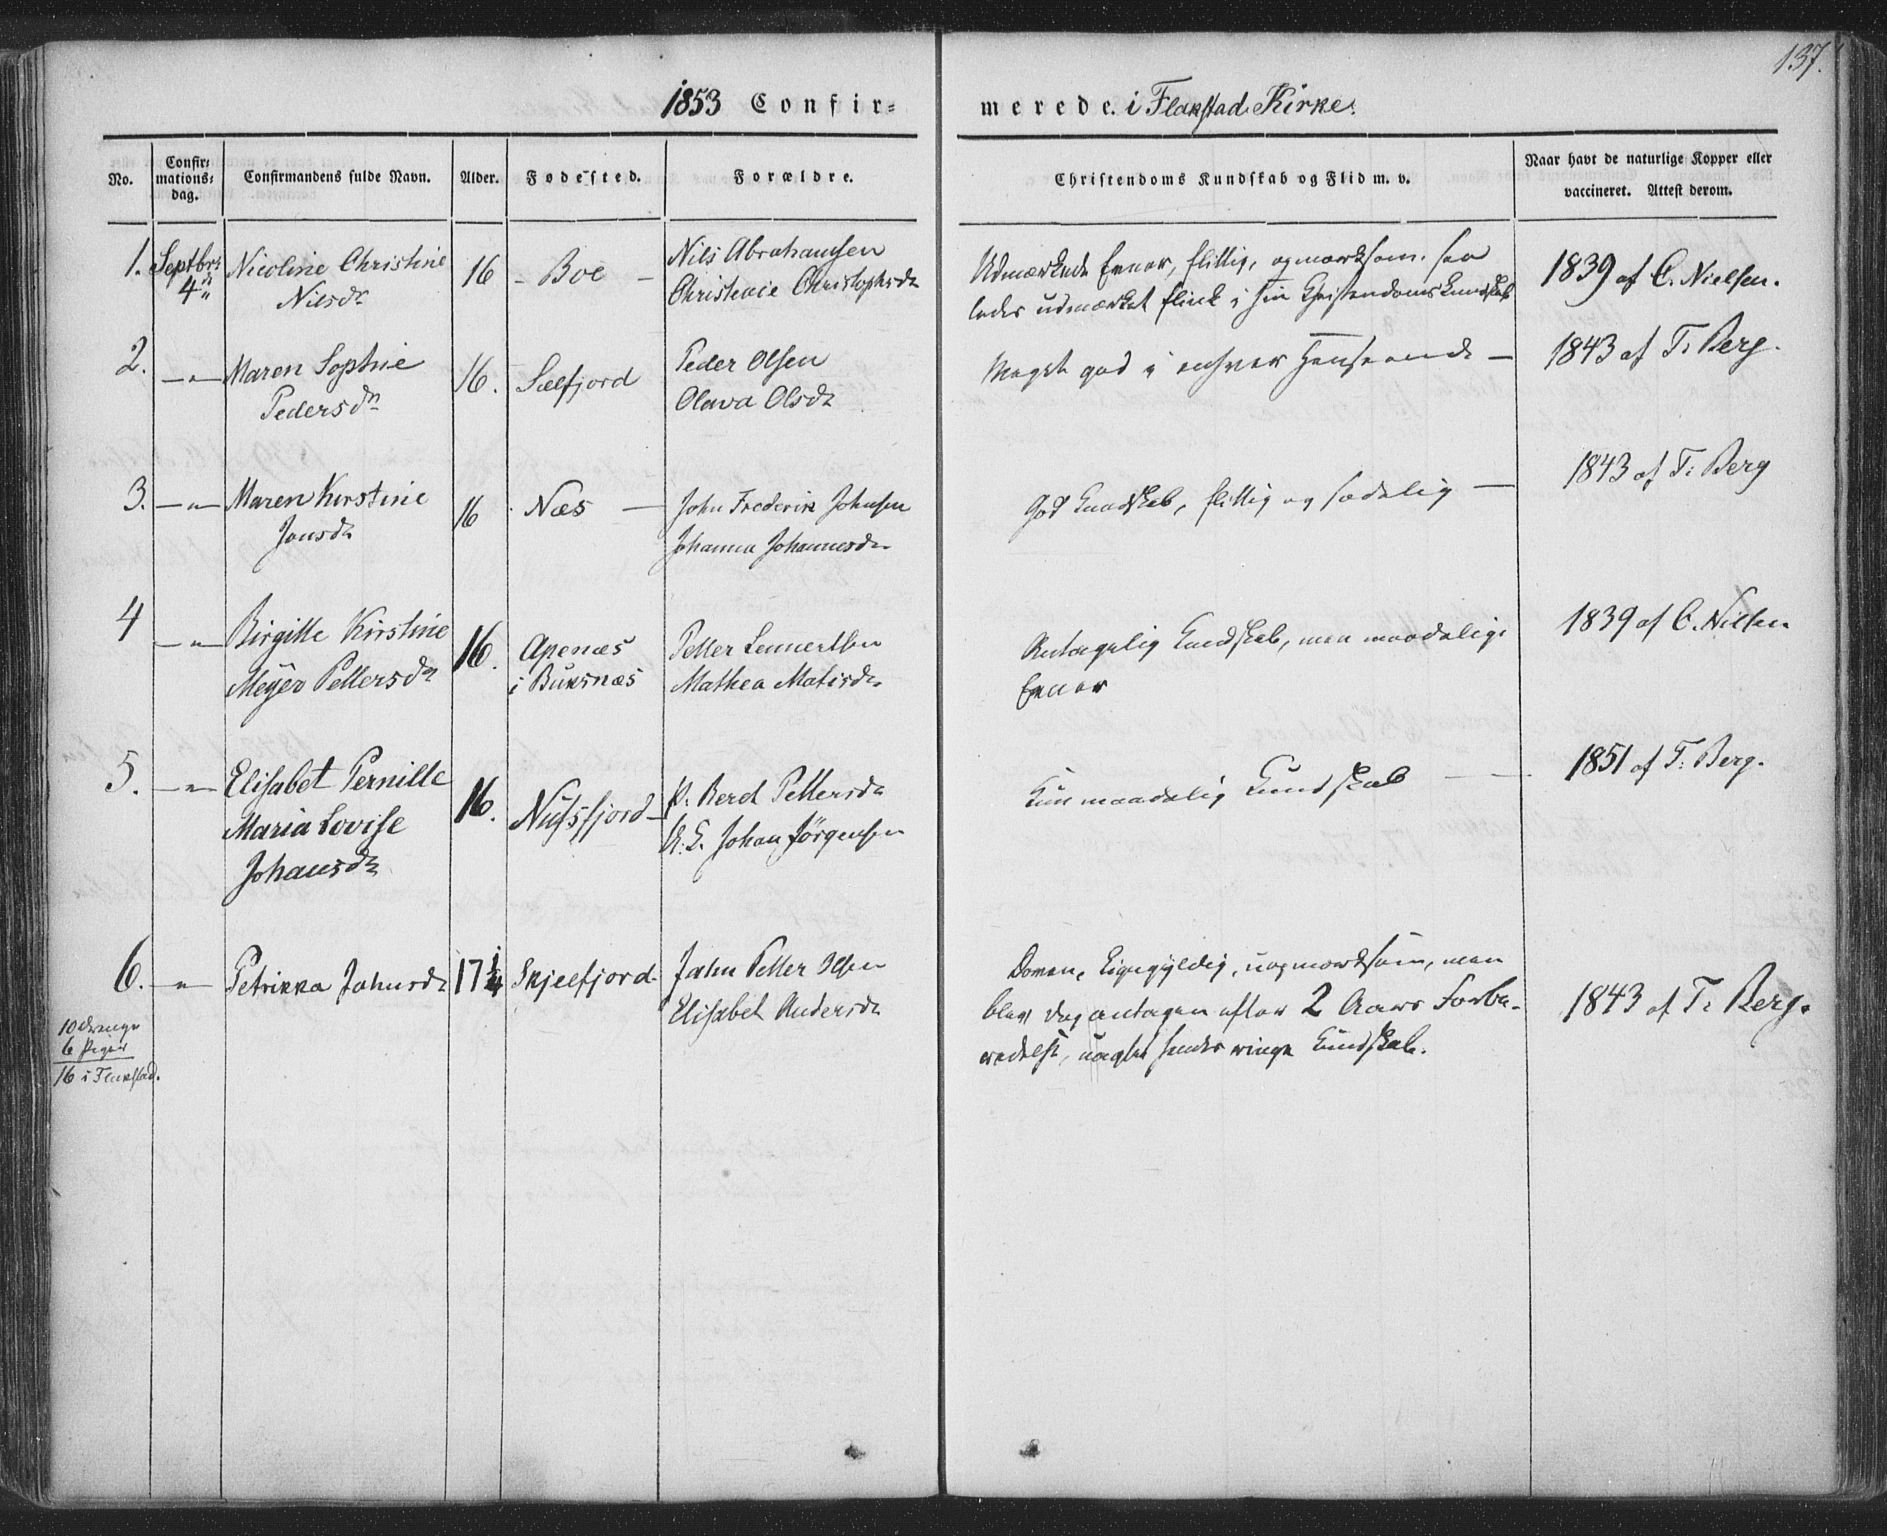 137.
1853 Confir=
merede. i Flakstad Kirke.
No.
Confir=
mations=
dag.
Confirmandens fulde Navn.
Alder.
Fødested.
Forældre.
Christendoms Kundskab og Flid m. v.
Naar havt de naturlige Kopper eller
vaccineret. Attest derom.
1. Septbr: 4de Nicoline Christine 16 - Boe - Nils Abrahamsen
Nilsdr Christence Christophsdr
Udmærkede Evner, flittig, opmærksom, saa
ledes udmærket flink i sin Christendomskundskab
1839 af C. Nielsen.
2. —"— Maren Sophie 16. Sælfjord Peder Olsen
Pedersdr Olava Olsdr
Meget god i enhver Henseende —
1843 af T. Berg.
3. —"— Maren Kirstine 16 Næs — John Frederik Johnsen
Jonsdr Johanna Johannesdr
God Kundskab, flittig og sædelig —
1843 af T: Berg
4 —"— Birgitte Kirstine 16. Apenæs Petter Lennertsen
Meyer Pettersdr i Buksnæs Mathea Matisdr
Antagelig Kundskab, men maadelige
Evner
1839 af C. Nielsen
5. —"— Elisabet Pernille 16. Nusfjord — P. Berch Pettersdr
Maria Lovise Johan Jørgensen
Johansdr
Kun maadelig Kundskab — —
1851 af T. Berg.
6. —"— Petrikka Johnsdr 17 1/4 Skjelfjord. John Petter Olsen
Elisabet Andersdr
Doven, ligegyldig, uopmærksom, men
blev dog antagen efter 2 Aars Forbe-
redelse, uagtet hendes ringe Kundskab.
1843 af T: Berg.
10 drenge
6 Piger
16 i Flakstad.